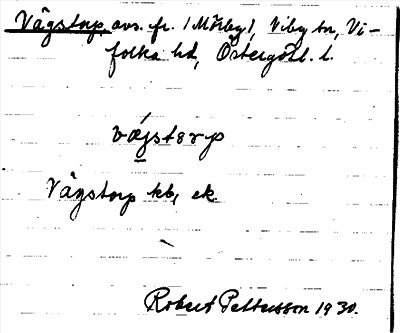 Vägstorp, avs. fr. (Mörby), Viby sn, Vi-
folka hd, Östergötl. l.
vägstorp
Vägstorp kb, ek
Robert Pettersson 1930.